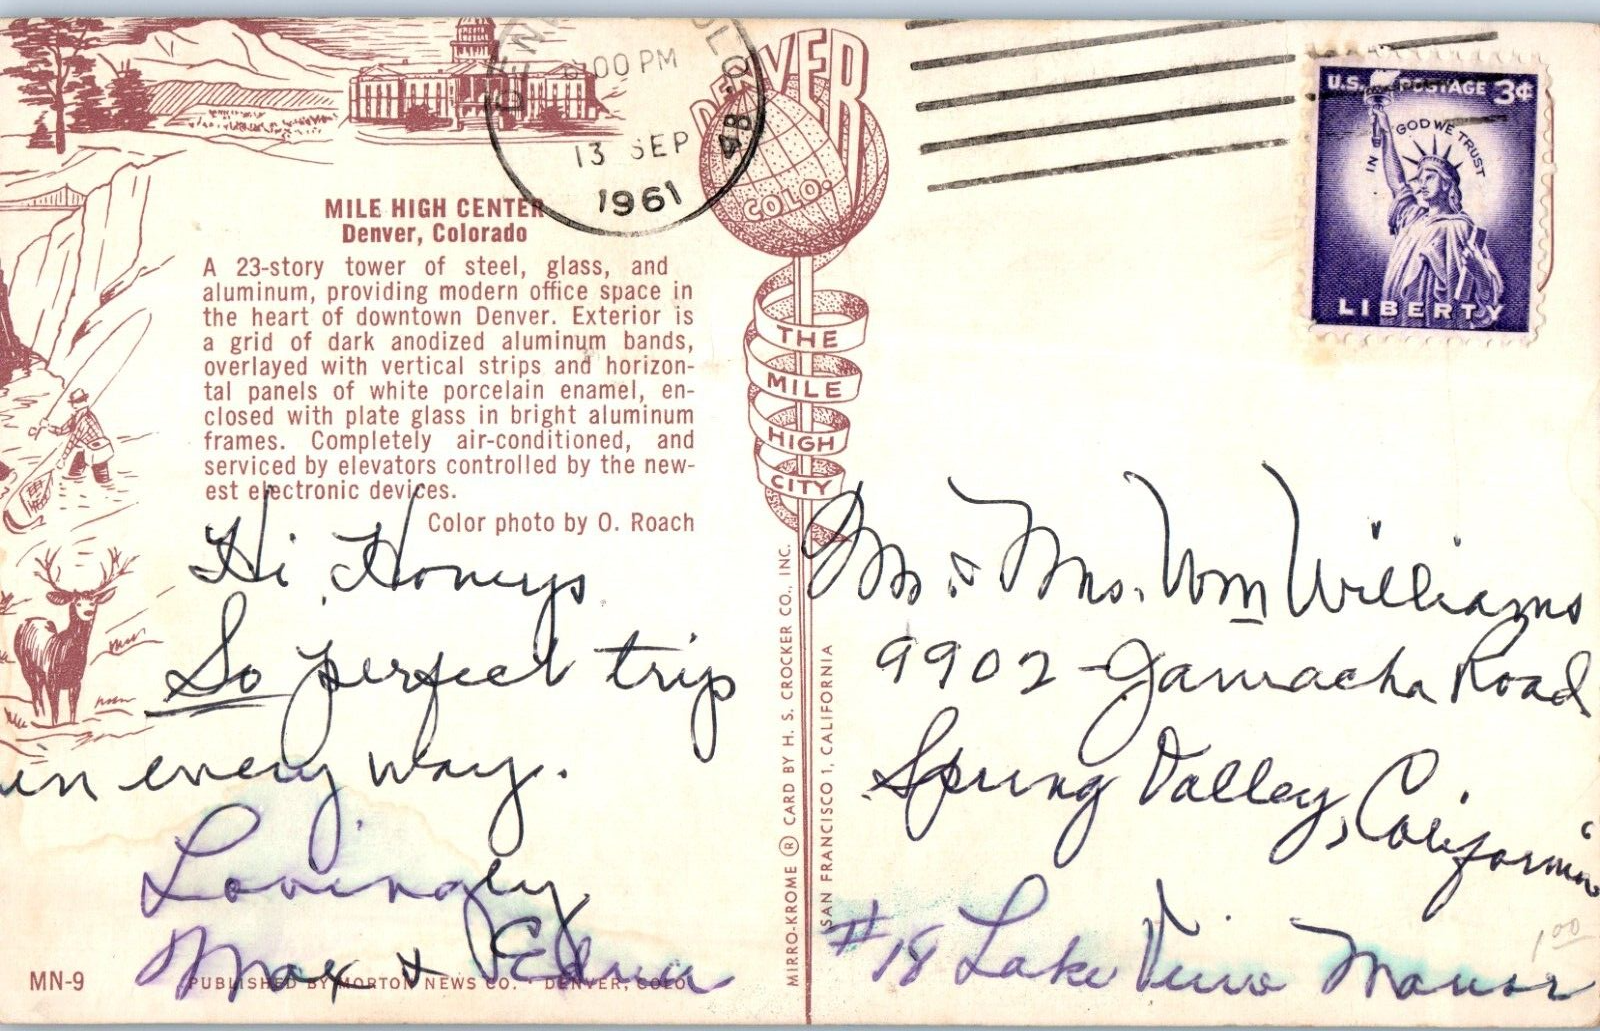 DENVER, COLO. 48
6:00 PM
13 SEP
1961
U.S. POSTAGE 3¢
IN GOD WE TRUST
LIBERTY
DENVER
COLO.
THE
MILE
HIGH
CITY
MILE HIGH CENTER
Denver, Colorado
A 23-story tower of steel, glass, and
aluminum, providing modern office space in
the heart of downtown Denver. Exterior is
a grid of dark anodized aluminum bands,
overlayed with vertical strips and horizon-
tal panels of white porcelain enamel, en-
closed with plate glass in bright aluminum
frames. Completely air-conditioned, and
serviced by elevators controlled by the new-
est electronic devices.
Color photo by O. Roach
Hi Honeys
So perfect trip
in every way.
Lovingly,
Max & Edna
MN-9
PUBLISHED BY MORTON NEWS CO. · DENVER, COLO.
MIRRO-KROME ® CARD BY H. S. CROCKER CO., INC.
SAN FRANCISCO 1, CALIFORNIA
Mr. & Mrs. Wm Williams
9902 - Jamacha Road
Spring Valley, California
#18 Lake View Manor
1.00